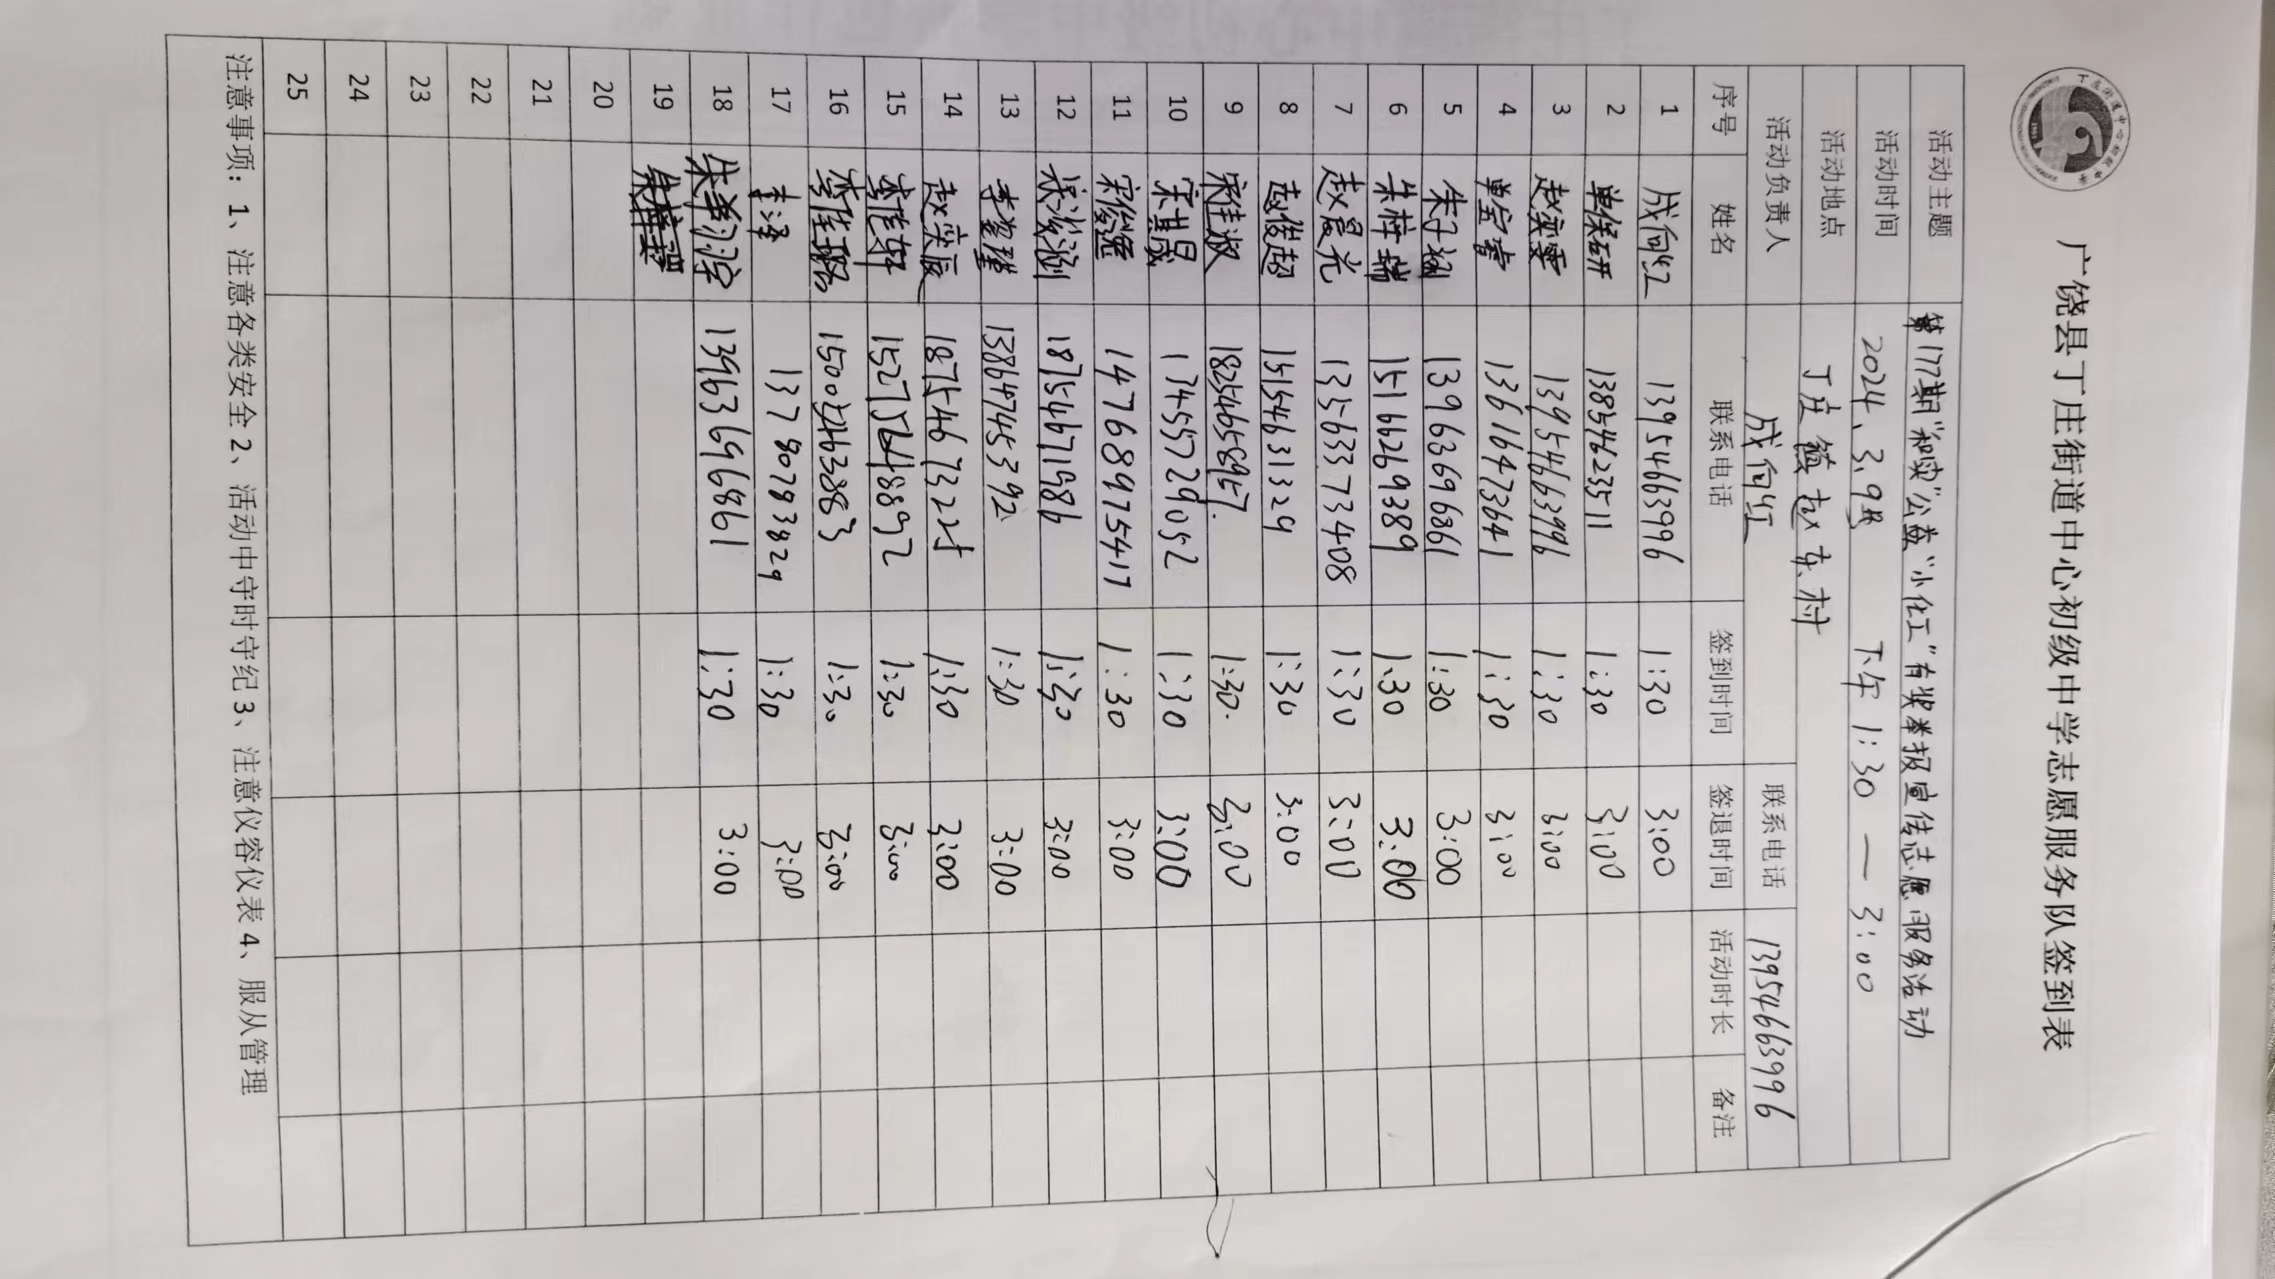 广饶县丁庄街道中心初级中学志愿服务队签到表
活动主题 第177期"和奕"公益"小化工"有奖举报宣传志愿服务活动
活动时间 2024.3.9号 下午 1:30 — 3:00
活动地点 丁庄镇赵东村
活动负责人 成向红 联系电话 13954663996
序号 姓名 联系电话 签到时间 签退时间 活动时长 备注
1 成向红 13954663996 1:30 3:00
2 单保研 13854623511 1:30 3:00
3 赵奕雯 13954663996 1:30 3:00
4 单宝睿 13616473641 1:30 3:00
5 朱子涵 13963696861 1:30 3:00
6 朱梓瑞 15166269389 1:30 3:00
7 赵晨光 13356337 3408 1:30 3:00
8 赵俊超 15154631329 1:30 3:00
9 宋佳淑 18254658967. 1:30. 3:00
10 宋其晟 17345729052 1:30 3:00
11 宋俊逸 14768975417 1:30 3:00
12 18754671986 1:30 3:00
13 李萱瑾 13864745392 1:30 3:00
14 赵奕辰 1:30 3:00
15 1:30 3:00
16 1:30 3:00
17 李泽 1:30 3:00
18 13963696861 1:30 3:00
19
20
21
22
23
24
25
注意事项：1、注意各类安全 2、活动中守时守纪 3、注意仪容仪表 4、服从管理